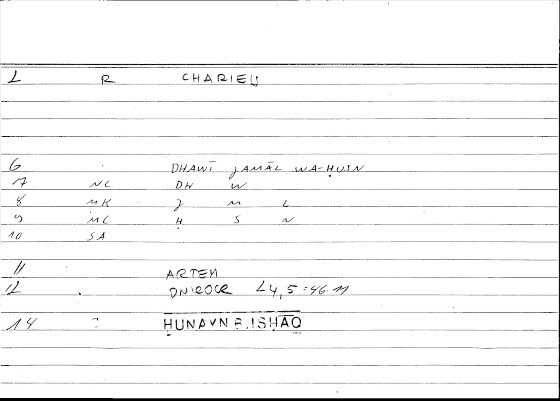 L R CHARIEIJ
6 DHAWĪ JAMĀL WA-ḤUSN
7 NC DH W
8 MK J M L
9 MC Ḥ S N
10 SA
11 ARTEM
12 ONIROCR 24,5:46.11
14 ? ḤUNAYN B.ISḤĀQ